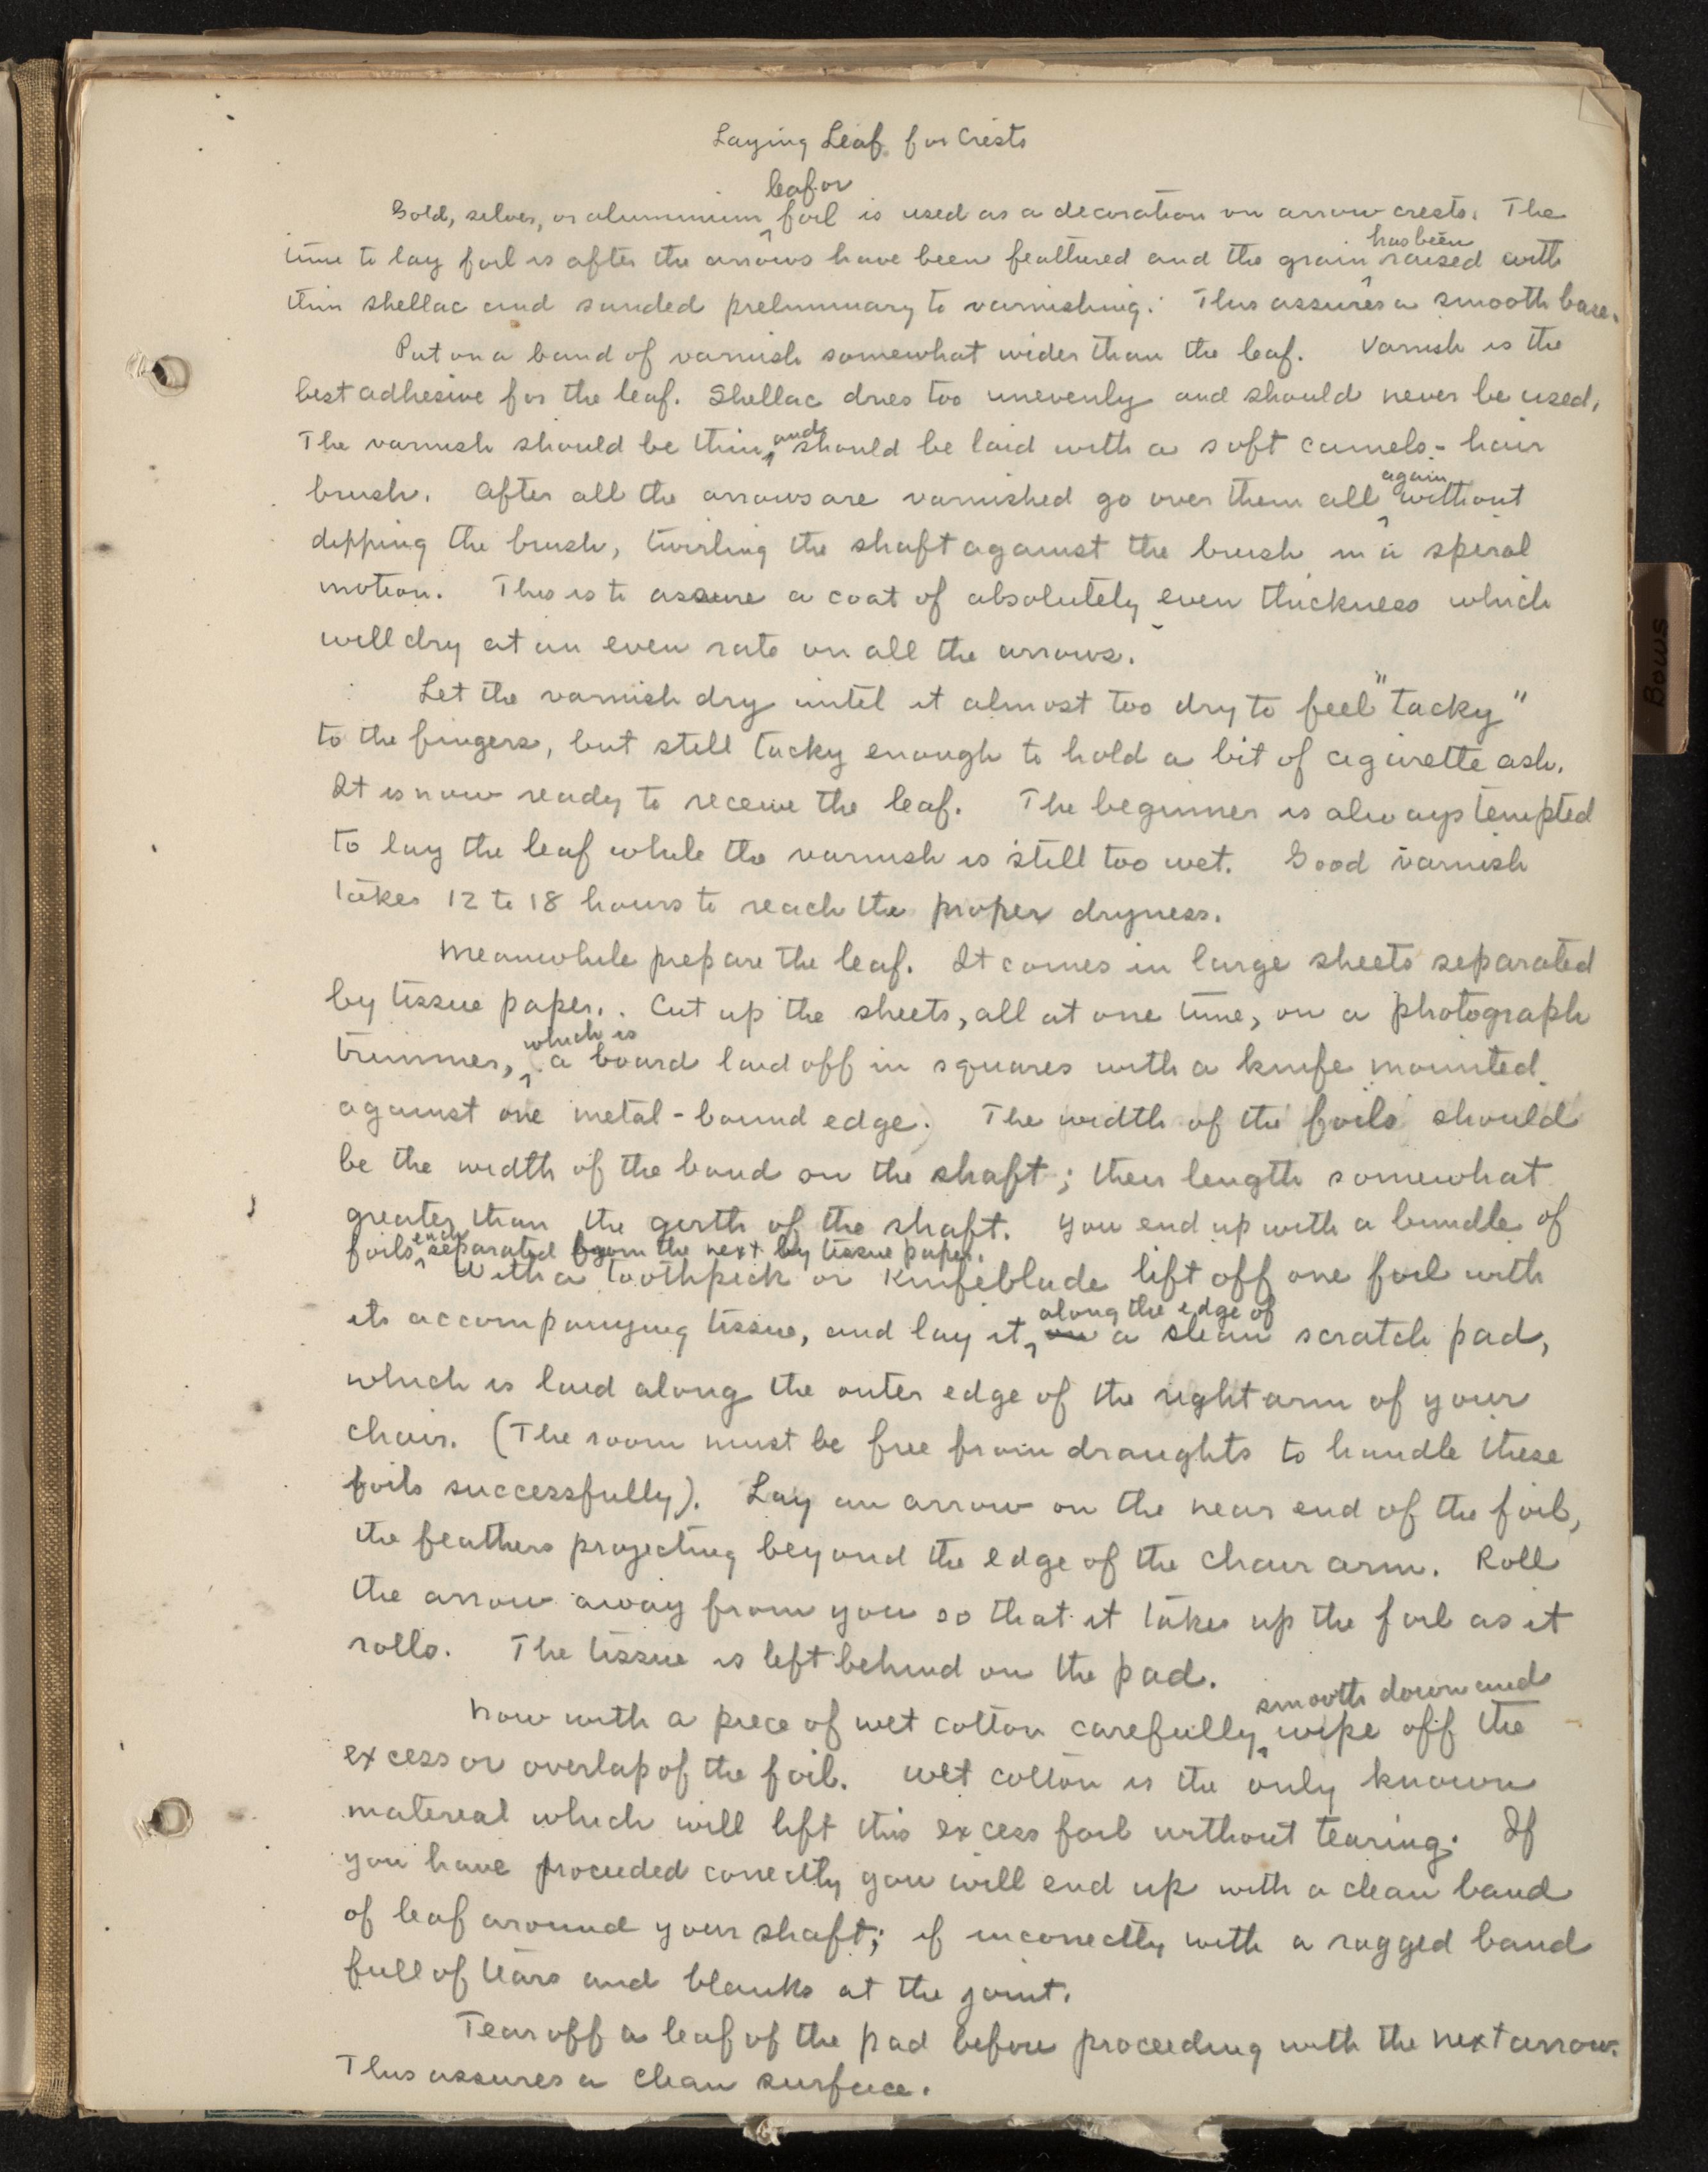 Laying Leaf for Crests
Gold, silver, or aluminium leaf or foil is used as a decoration on arrow crests. The
time to lay foil is after the arrows have been feathered and the grain has been raised with
thin shellac and sanded preliminary to varnishing. This assures a smooth base.
Put on a band of varnish somewhat wider than the leaf. Varnish is the
best adhesive for the leaf. Shellac dries too unevenly and should never be used.
The varnish should be thin, and should be laid with a soft camels-hair
brush. After all the arrows are varnished go over them all again without
dipping the brush, twirling the shaft against the brush in a spiral
motion. This is to assure a coat of absolutely even thickness which
will dry at an even rate on all the arrows.
Let the varnish dry until it almost too dry to feel "tacky"
to the fingers, but still tacky enough to hold a bit of cigarette ash.
It is now ready to receive the leaf. The beginner is always tempted
to lay the leaf while the varnish is still too wet. Good varnish
takes 12 to 18 hours to reach the proper dryness.
Meanwhile prepare the leaf. It comes in large sheets separated
by tissue paper. Cut up the sheets, all at one time, on a photograph
trimmer, which is a board laid off in squares with a knife mounted
against one metal-bound edge. The width of the foils should
be the width of the band on the shaft; their length somewhat
greater than the girth of the shaft. You end up with a bundle of
foils each separated from the next by tissue paper.
With a toothpick or knifeblade lift off one foil with
its accompanying tissue, and lay it, along the edge of on a clean scratch pad,
which is laid along the outer edge of the right arm of your
chair. (The room must be free from draughts to handle these
foils successfully). Lay an arrow on the near end of the foil,
the feathers projecting beyond the edge of the chair arm. Roll
the arrow away from you so that it takes up the foil as it
rolls. The tissue is left behind on the pad.
Now with a piece of wet cotton carefully smooth down and wipe off the
excess or overlap of the foil. Wet cotton is the only known
material which will lift this excess foil without tearing. If
you have proceeded correctly you will end up with a clean band
of leaf around your shaft; if incorrectly with a ragged band
full of tears and blanks at the joint.
Tear off a leaf of the pad before proceeding with the next arrow.
This assures a clean surface.
Bows